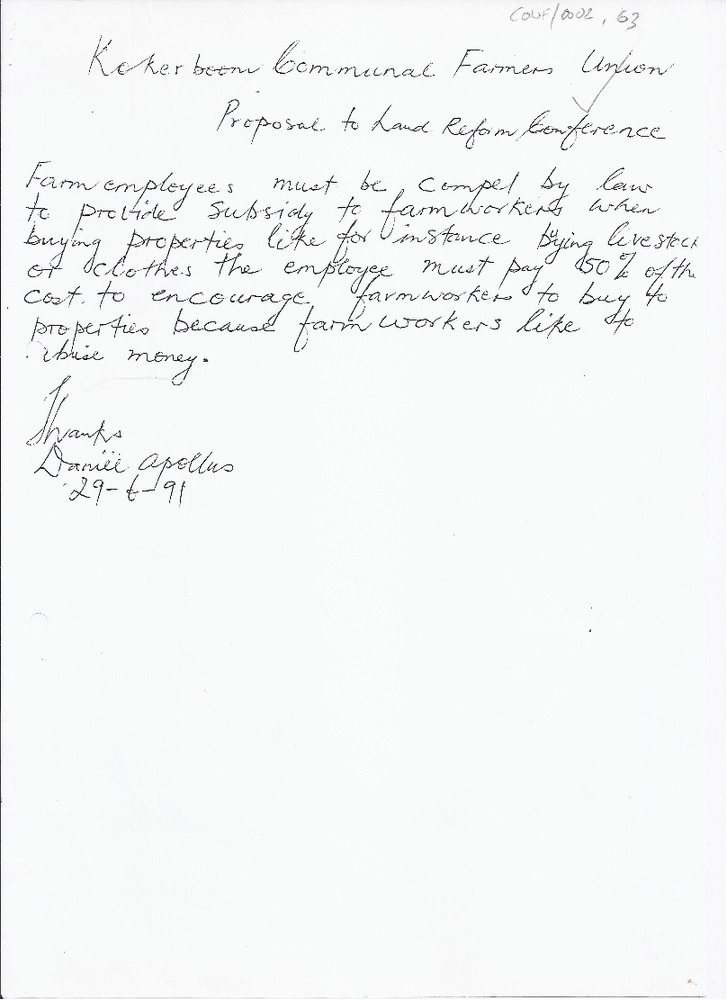 COWF/0002, 63
Kokerboom Communal Farmers Union
Proposal to Land Reform Conference
Farm employees must be compel by law
to provide subsidy to farmworkers when
buying properties like for instance bying livestock
or clothes the employee must pay 50% of th
cost. to encourage farmworkers to buy to
properties because farm workers like to
abuse money.
Thanks
Daniël Apollus
29-6-91